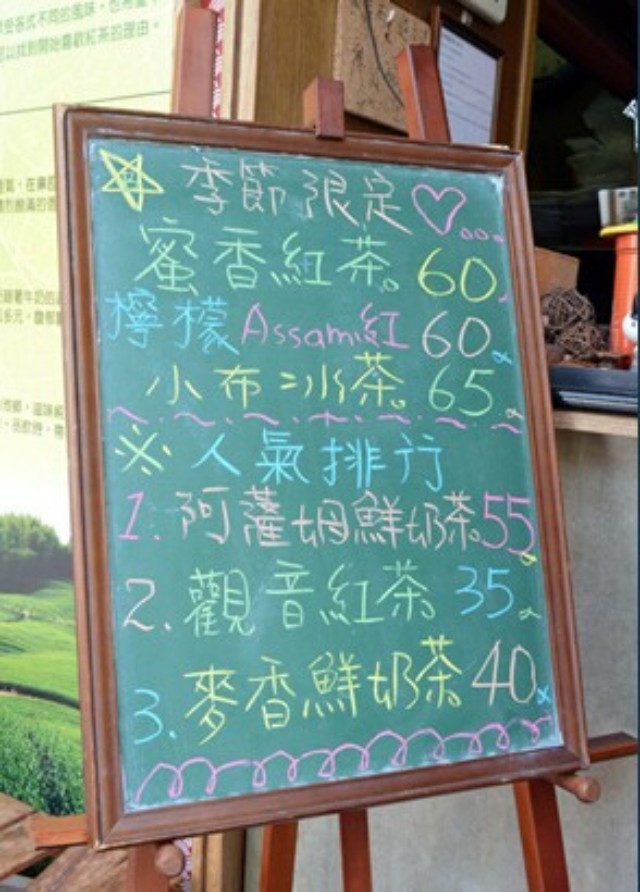 季節限定
蜜香紅茶。60
檸檬Assam紅 60
小布冰茶。65
※人氣排行
1. 阿薩姆鮮奶茶。55
2. 觀音紅茶。35
3. 麥香鮮奶茶。40